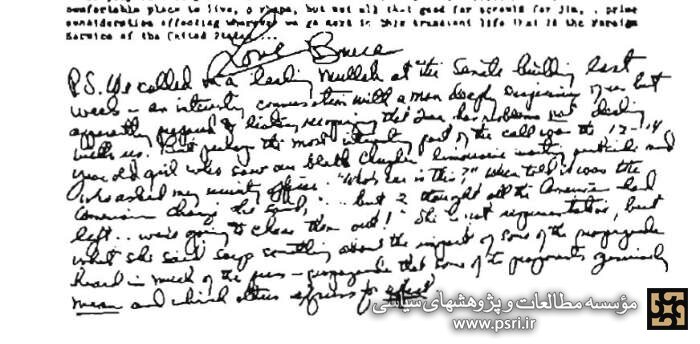 comfortable place to live, , but not all that good for schools for Jim, . prime
consideration affecting wherever we go next in this transient life that is the Foreign
Service of the United States...
Love Bruce
P.S. We called on a leading Mullah at the Senate building last
week - an interesting conversation with a man deeply suspicious of us but
apparently to recognizing that Iran has problems not dealing
with us. But perhaps the most interesting part of the call was the 12-14
year old girl who saw our black Chrysler limousine waiting outside and
who asked my security officer. "Who's car is this?" When told it was the
American Chargé she said, "... but I thought all the Americans had
left.. we're going to chase them out!" She is not representative, but
what she said says something about the impact of some of the propaganda
heard in much of the press - propaganda that some of the proponents genuinely
mean and which others express for effect
مؤسسه مطالعات و پژوهشهای سیاسی
www.psri.ir